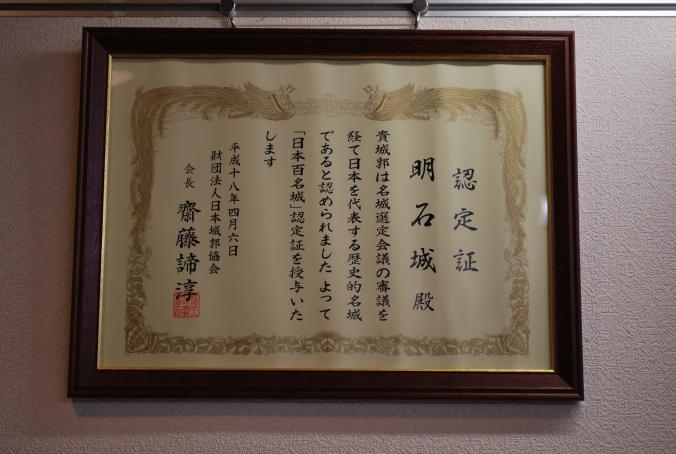 認定証
明石城殿
貴城郭は名城選定会議の審議を
経て日本を代表する歴史的名城
であると認められました よって
「日本百名城」認定証を授与いた
します
平成十八年四月六日
財団法人日本城郭協会
会長 齋藤諦淳